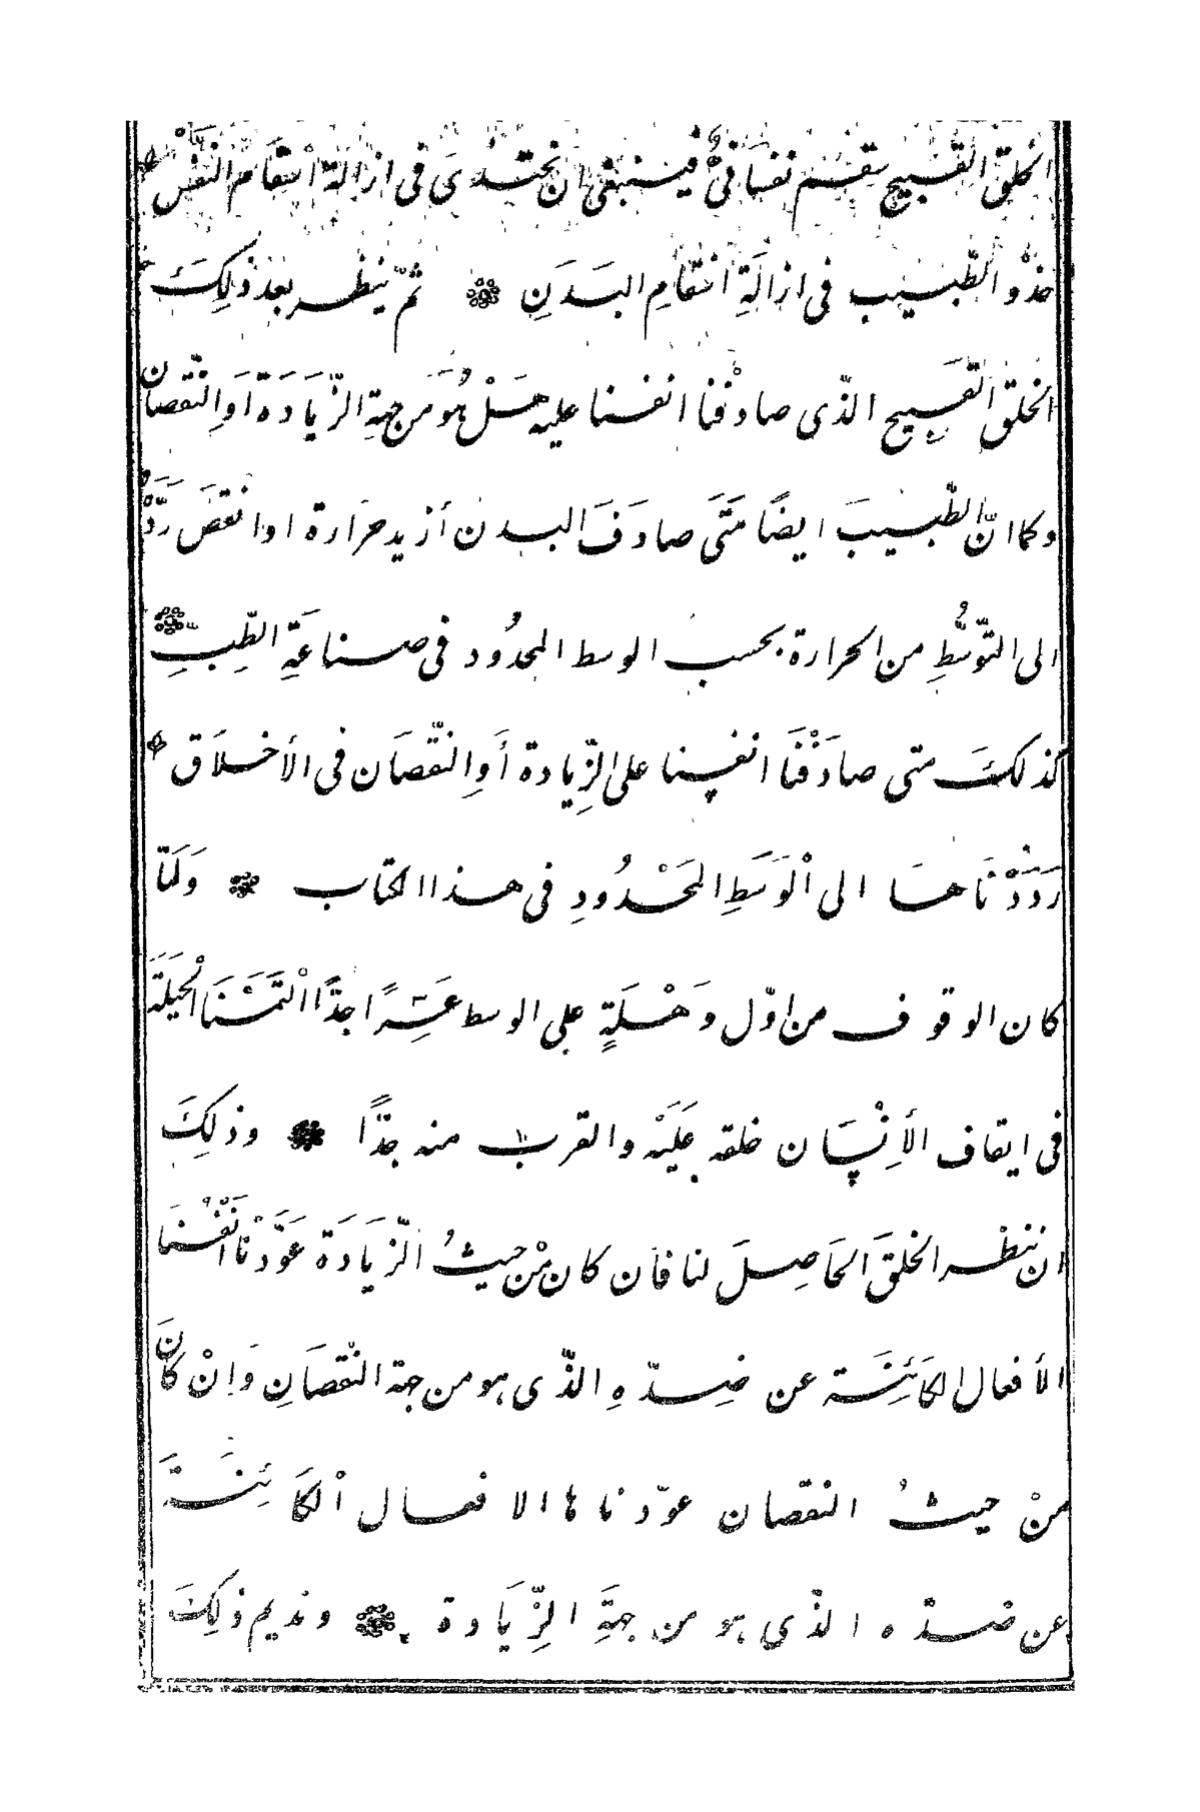 الخلق القبيح سقم نفسانىّ فينبغى ان نحتذى فى ازالة اسقام النفس
حذو الطّبيب فى ازالَةِ اسقامِ البَدَنِ ثمّ ينظر بعد ذلِكَ
الخلق القَبيح الذّى صادفْنا انفسنا عليه هَلْ هُوَ من جهةِ الزّيَادَة اَوِ النّقصان
وكما انّ الطّبيبَ ايضًا مَتَى صادَفَ البدن أزيد حرَارة او انقصَ رَدَّهُ
الى التّوسُّطِ من الحرارة بحسب الوسط المحدُود فى صناعَةِ الطِّبِ
كذلكَ متى صادَفْنَا انفسنا على الزِّيادة أَوِ النّقصَان فى الأخلَاق
رَدَدْنَاهَا الى اْلوَسَطِ المَحْدُودِ فى هذا الكتاب وَلَمّا
كان الوقوف من اوّل وَهْلَةٍ على الوسط عَسِرًا جدًّا اْلتَمَسْنَا اْلحيلَةَ
فى ايقاف الأِنْسَان خلقه عَلَيْه والقرب منه جدًّا وذلِكَ
ان ننظر الخلقَ الحَاصِلَ لنا فأن كان مْن حيثُ الزّيَادَة عَوَّدْنَا اَنْفُسَنَا
الأفعال الكَائِنَة عن ضِدّهِ الذّى هو من جهة النّقصَانِ وَاِنْ كَانَ
منْ حيثُ النقصان عوّدناها الافعال اْلكَائِنَةَ
عن ضدّه الذّى هو من جهَةِ الزِّيَادة ونديم ذلِكَ